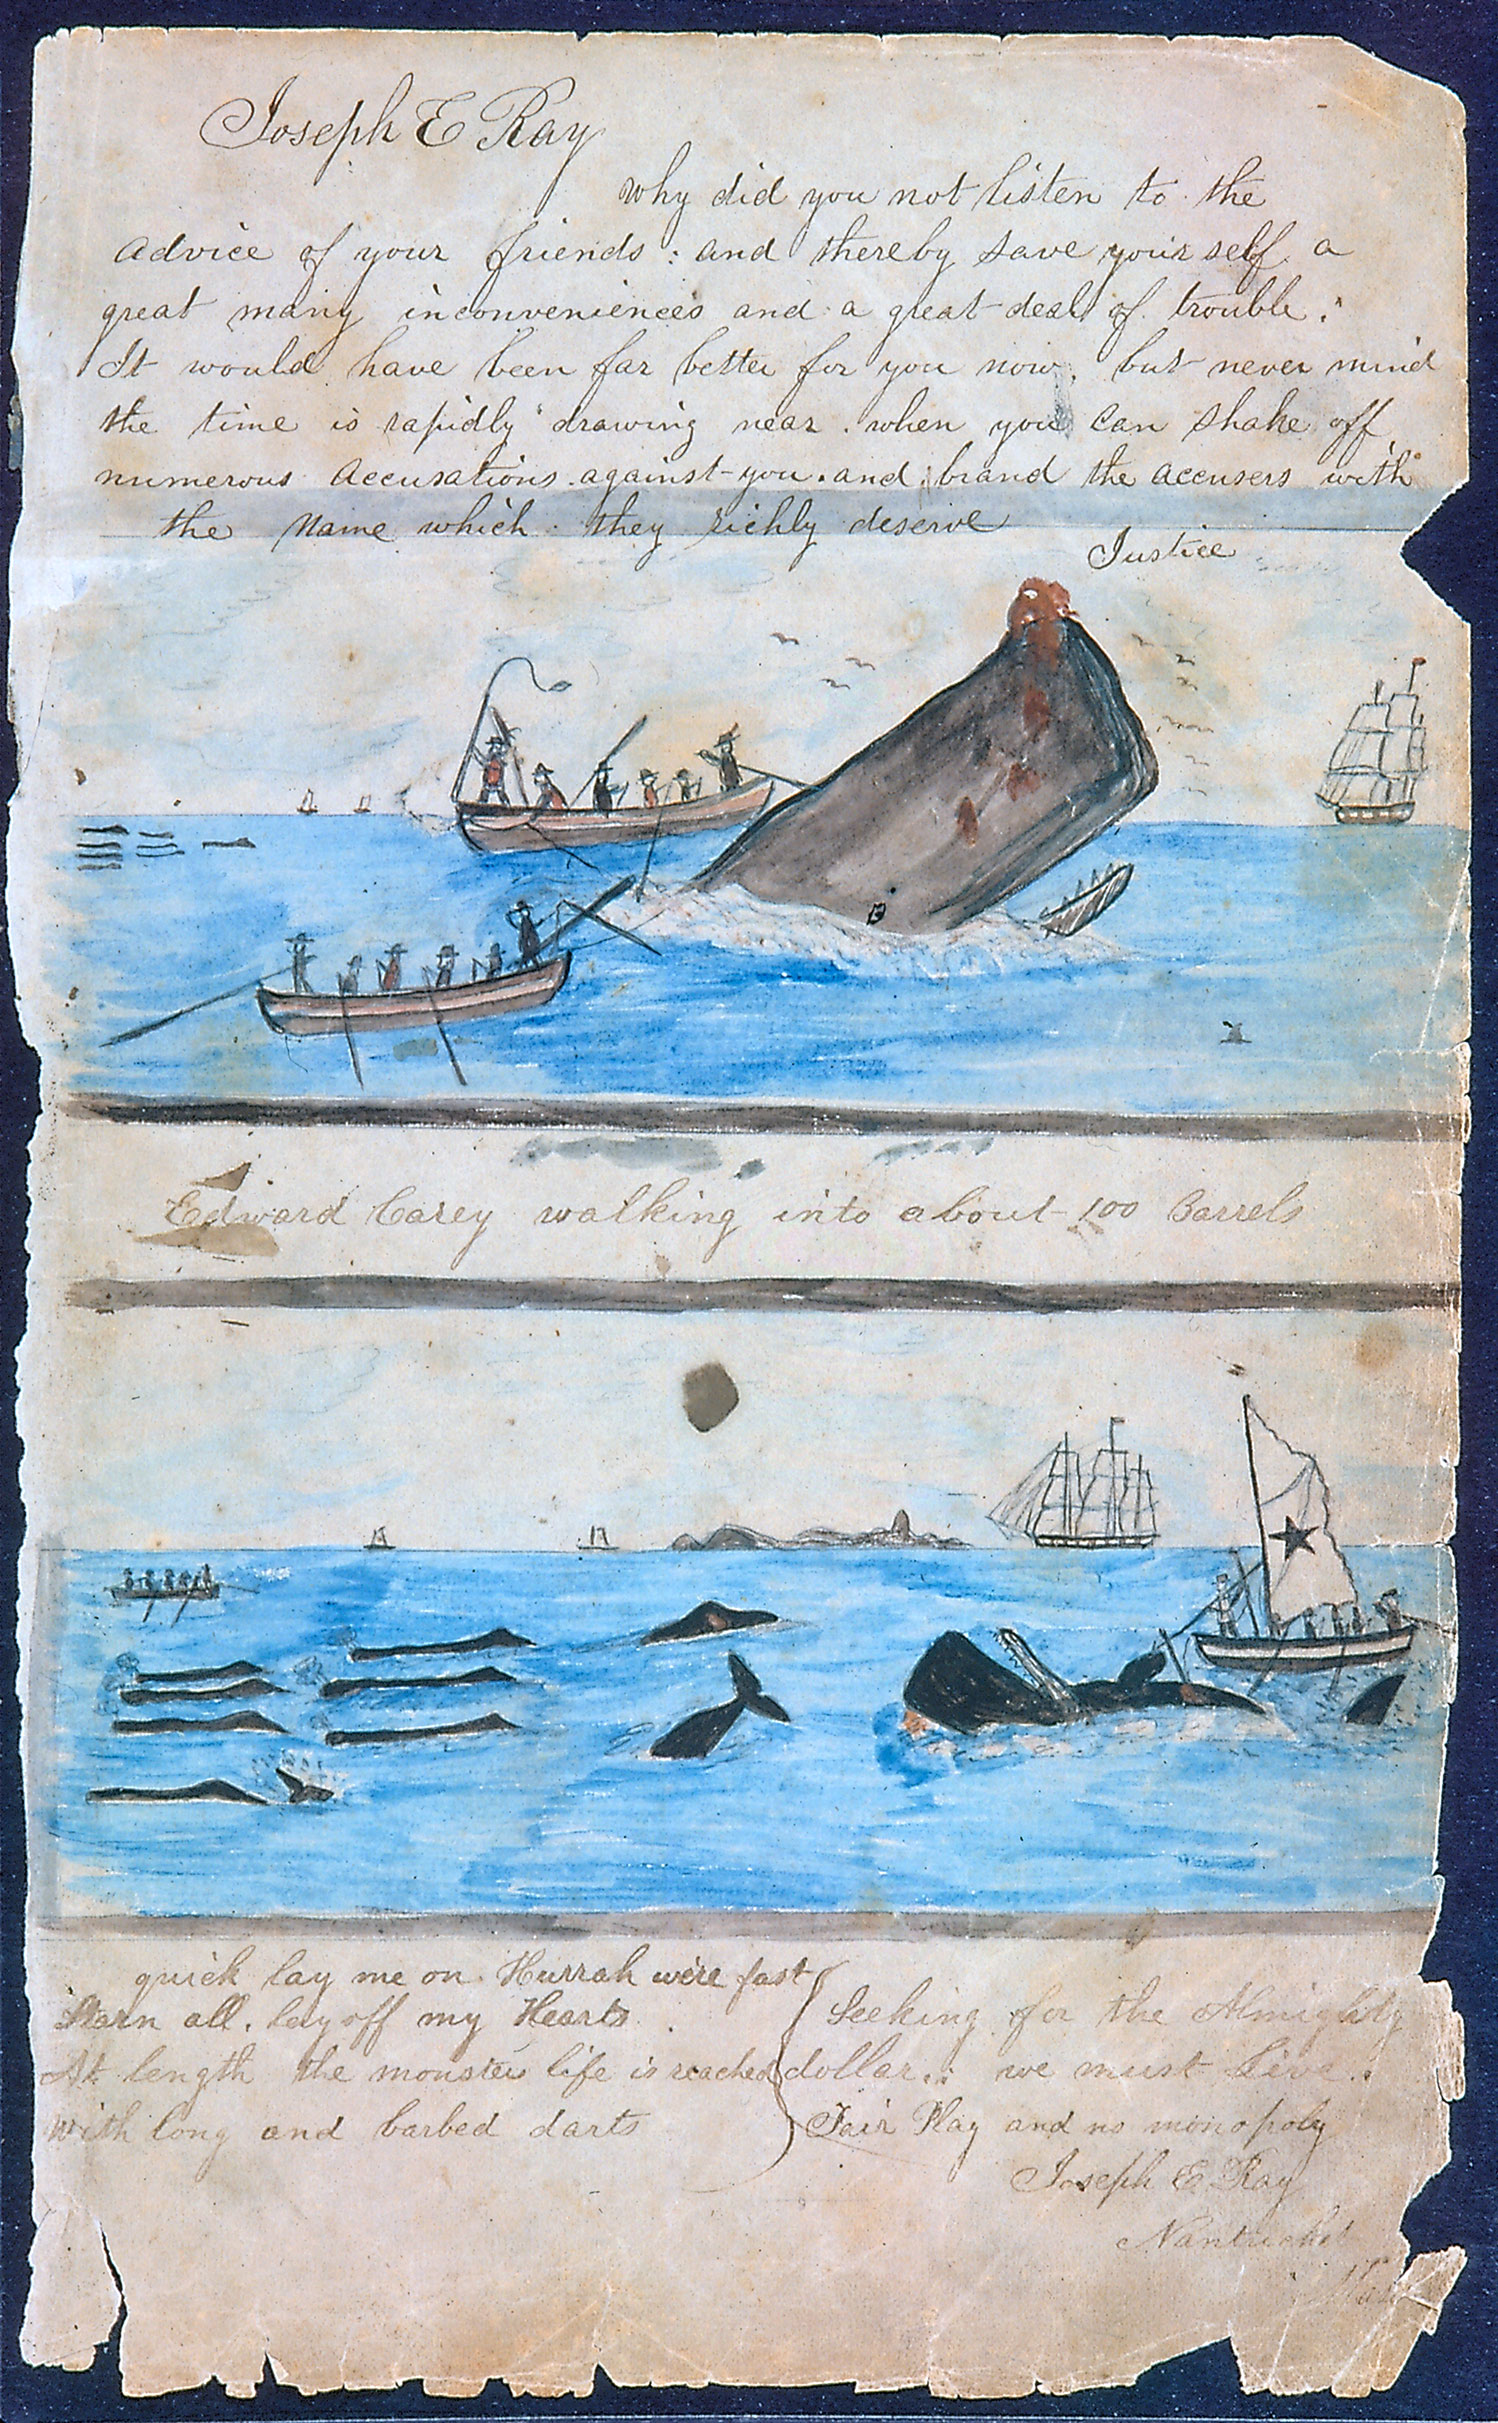 Joseph E Ray
why did you not listen to the
advice of your friends : and thereby save your self a
great many inconveniences and a great deal of trouble .
It would have been far better for you now . but never mind
the time is rapidly drawing near . when you can shake off
numerous accusations . against you . and brand the accusers with
the Name which . they richly deserve
Justice
Edward Carey walking into about 100 Barrels
quick lay me on . Hurrah we're fast
Starn all . lay off my Hearts
At length the monsters life is reached
With long and barbed darts
Seeking for the Almighty
dollar . : we must live . .
Fair Play and no monopoly
Joseph E Ray
Nantucket
Mass